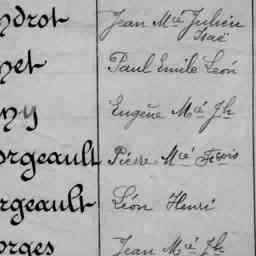 ndrot Jean Mcé Julien
Isaë
net Paul Emile Léon
ny Eugène Mcé Jh
orgeault Pierre Mcé Fçois
rgeault Léon Henri
orges Jean Mcé Jh